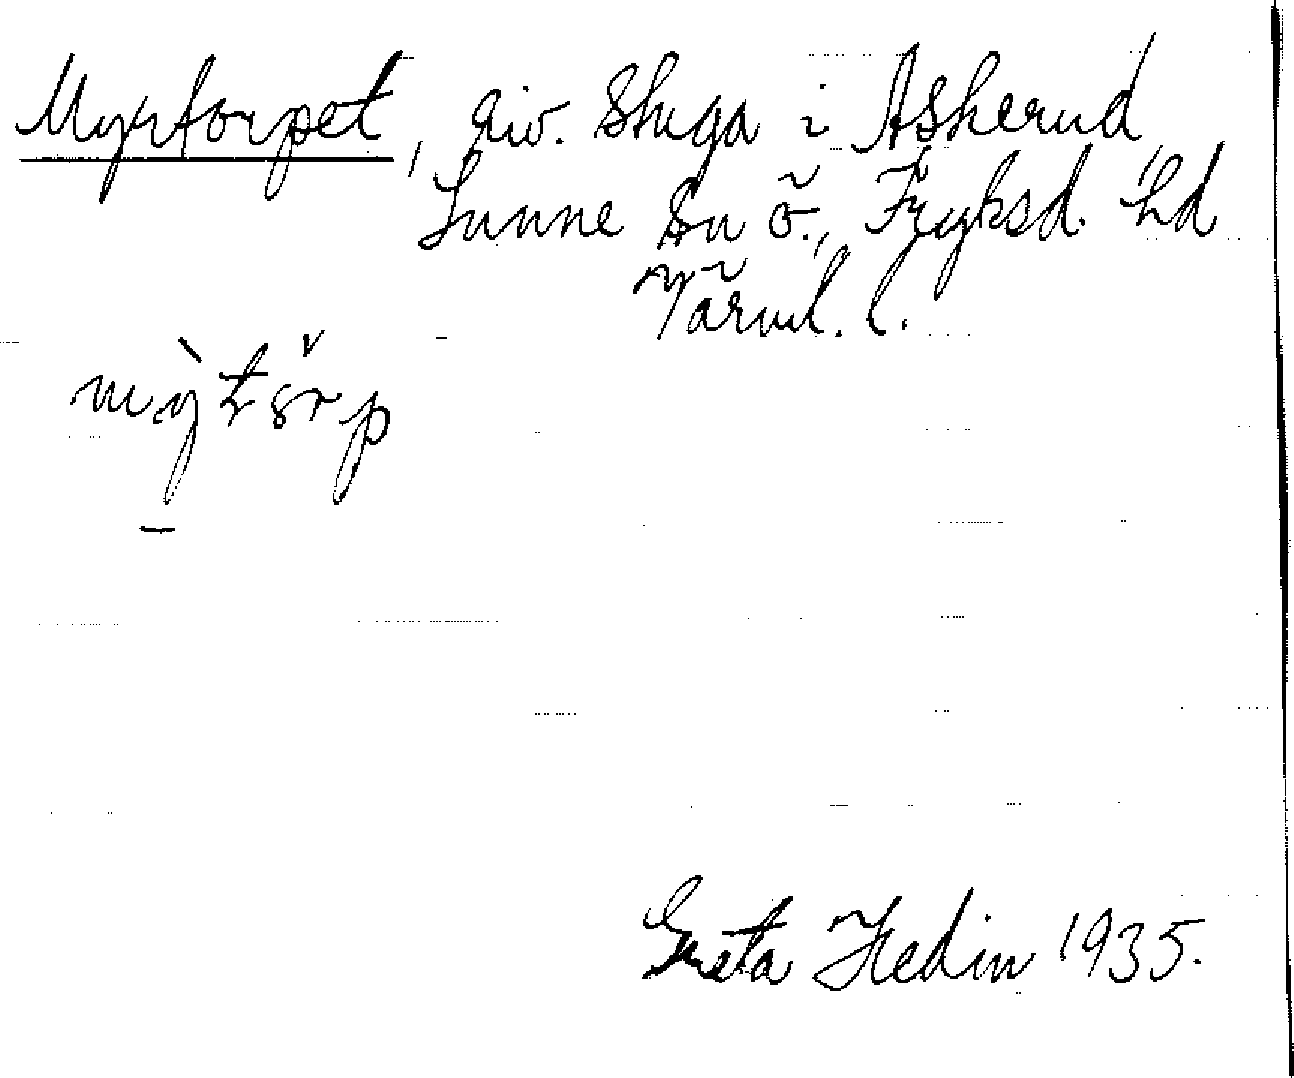 Myrtorpet, riv. stuga i Askerud,
Sunne sn ö., Fryksd. hd
Värml. l.
Greta Hedin 1935.